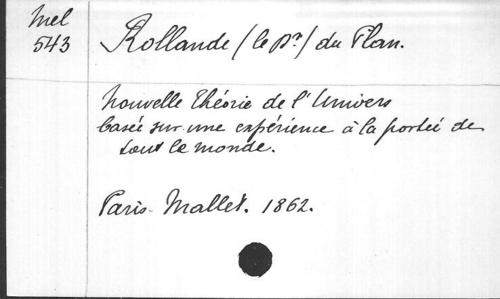 Mel
543
Rollande (le Dr) du Plan.
Nouvelle Théorie de l'Univers
basée sur une expérience à la portée de
tout le monde.
Paris - Mallet. 1862.